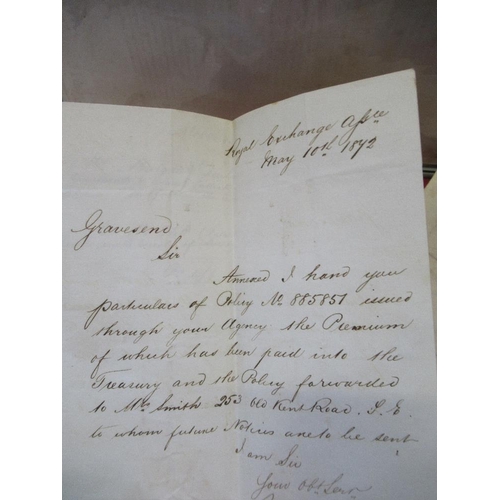 Royal Exchange Assce
May 10th 1872
Gravesend
Sir
Annexed I hand you
particulars of Policy No 885851 issued
through your Agency the Premium
of which has been paid into the
Treasury and the Policy forwarded
to Mrs Smith 253 Old Kent Road, S.E.
to whom future Notices are to be sent
I am Sir
Your Obt Serv